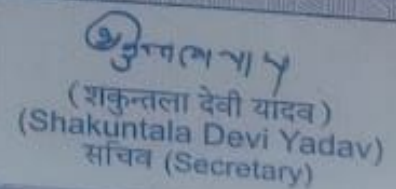 (शकुन्तला देवी यादव)
(Shakuntala Devi Yadav)
सचिव (Secretary)